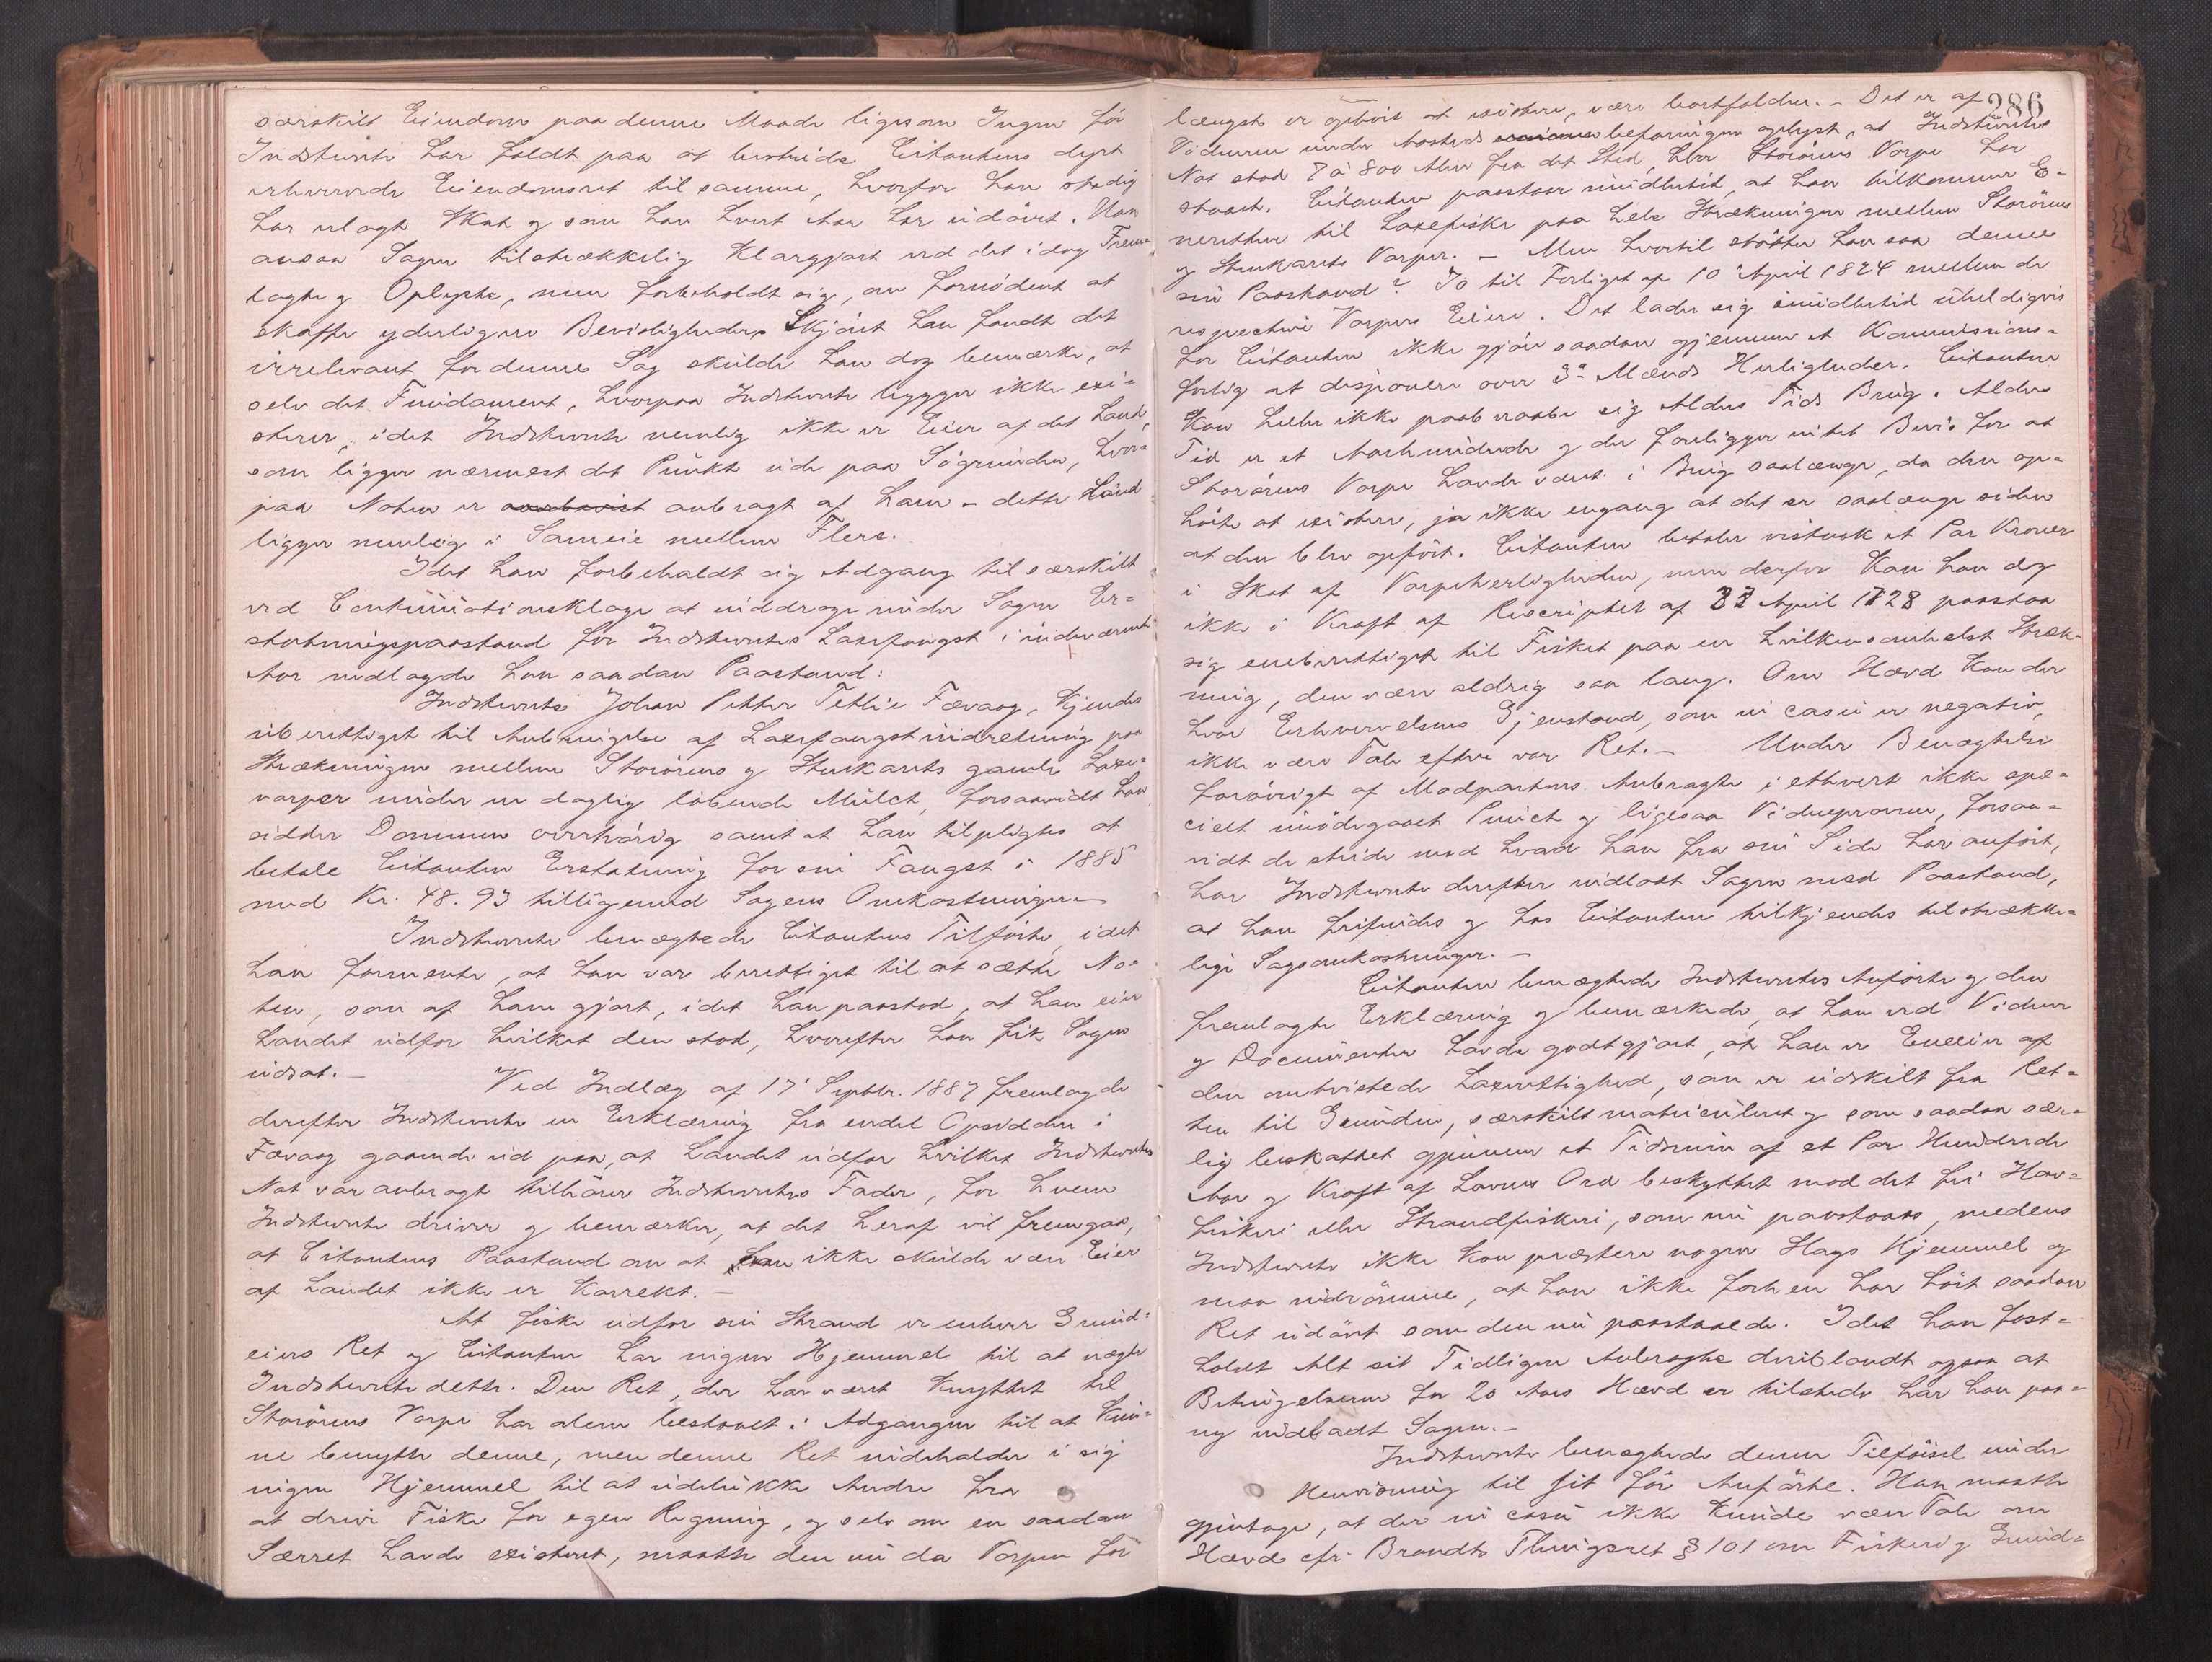 særskilt Eiendom paa denne Maade ligesom Ingen før
Indstevnte har faldt paa at bestride Citantens dyrt
erhvervede Eiendomsret til samme, hvorfor han stadig
har erlagt Skat og som han hvert Aar har udövet. Han
ansaa Sagen tilstrækkelig klargjort ved det idag Frem-
lagte og Oplyste, men forbeholdt sig, om fornödent at
skaffe yderligere Bevisligheder. Skjönt han fandt det
irrelevant for denne Sag skulde han dog bemærke, at
selv det Fundament, hvorpaa Indstevnte bygger ikke exi-
sterer, idet Indstevnte nemlig ikke er Eier af det Land,
som ligger nærmest det Punkt ude paa Sögrunden, hvor-
paa Noten er anbragt af ham - dette Land
ligger nemlig i Sameie mellem Flere.
Idet han forbeholdt sig Adgang til særskilt
ved Continuationsklage at inddrage under Sagen Er-
statningspaastand for Indstevntes Laxefangst i indeværende
Aar nedlagde han saadan Paastand:
Indstevnte Johan Petter Tetlie Fævaag, kjendes
uberettiget til Anbringelse af Laxefangstindretning paa
Strækningen mellem Storörens og Stenkarets gamle Laxe-
varper under en daglig löbende Mulct, forsaavidt han
sidder Dommen overhörig samt at han tilpligtes at
betale Citanten Erstatning for sin Fangst i 1885
med Kr. 48.93 tilligemed Sagens Omkostninger.
Indstevnte benægtede Citantens Tilförte, idet
han formente, at han var berettiget til at sætte No-
ten, som af ham gjort, idet han paastod, at han eier
Landet udfor hvilket den stod, hvorefter han fik Sagen
udsat. -
Ved Indlæg af 17' Septbr. 1887 fremlagde
derefter Indstevnte en Erklæring fra endel Opsiddere i
Fævaag gaaende ud paa, at Landet udfor hvilket Indstevntes
Not var anbragt tilhörer Indstevntes Fader, for hvem
Indstevnte driver og bemærker, at det heraf vil fremgaa,
at Citantens Paastand om at han ikke skulde være Eier
af Landet ikke er korrekt. -
At fiske udfor sin Strand er enhver Grund-
eiers Ret og Citanten har ingen Hjemmel til at nægte
Indstevnte dette. Den Ret, der har været knyttet til
Storörens Varpe har alene bestaaet i Adgangen til at kun-
ne benytte denne, men denne Ret indeholder i sig
ingen Hjemmel til at udelukke Andre fra
at drive Fiske for egen Regning, og selv om en saadan
Særret havde existeret, maatte den nu da Varpen for
286
længst er ophört at existere, være bortfalden. - Det er af
Vidnerne under Aasteds befaringen oplyst, at Indstevntes
Not stod 7 à 800 Alen fra det Sted, hvor Storörens Varpe har
staaet. Citanten paastaar imidlertid, at han tilkommer E-
neretten til Laxefiske paa hele Strækningen mellem Storörens
og Stenkarets Varper. - Men hvortil stötter han saa denne
sin Paastand? Jo til Forliget af 10' April 1824 mellem de
respective Varpers Eiere. Det lader sig imidlertid uheldigvis
for Citanten ikke gjöre saadan gjennem et Kommissions-
forlig at disponere over 3' Mænds Herligheder. Citanten
kan heller ikke paaberaabe sig Alders Tids Brug. Alders
Tid er et Aarhundrede og der foreligger intet Bevis for at
Storörens Varpe havde været i Brug saalænge, da den op-
hörte at existere, ja ikke engang at det er saalænge siden
at den blev opfört. Citanten betaler vistnok et Par Kroner
i Skat af Varpeherligheden, men derfor kan han dog
ikke i Kraft af Rescriptet af April 1728 paastaa
sig eneberettiget til Fisket paa en hvilkensomhelst Stræk-
ning, den være aldrig saa lang. Om Hævd kan der
hvor Erhvervelsens Gjenstand, som in casu er negativ,
ikke være Tale efter vor Ret. - Under Benægtelse
forövrigt af Modpartens Anbragte i ethvert ikke spe-
cielt imödegaaet Punct og ligesaa Vidneprovene, forsaa-
vidt de stride mod hvad han fra sin Side har anfört,
har Indstevnte derefter indladt Sagen med Paastand,
at han frifindes og hos Citanten tilkjendes tilstrække-
lige Sagsomkostninger. -
Citanten benægtede Indstevntes Anförte og den
fremlagte Erklæring og bemærkede, at han ved Vidner
og Documenter havde godtgjort, at han er Eneeier af
den omtvistede Laxerettighed, som er udskilt fra Ret-
ten til Grunden, særskilt matriculeret og som saadan sær-
lig beskattet gjennem et Tidsrum af et Par Hundrede
Aar og Kraft af Lovens Ord beskyttet mod det fri Hav-
fiskeri eller Strandfiskeri, som nu paastaaes, medens
Indstevnte ikke kan præstere nogen Slags Hjemmel og
maa indrömme, at han ikke forhen har hört saadan
Ret udövt som den nu paastaaede. Idet han fast-
holdt Alt sit Tidligere Anbragte deriblandt ogsaa at
Betingelserne for 20 Aars Hævd er tilstede har han paa-
ny indladt Sagen. -
Indstevnte benægtede denne Tilförsel under
Henvisning til sit för Anförte. Han maatte
gjentage, at der in casu ikke kunde være Tale om
Hævd cfr. Brandts Thingsret § 101 om Fiskeri og Grund-